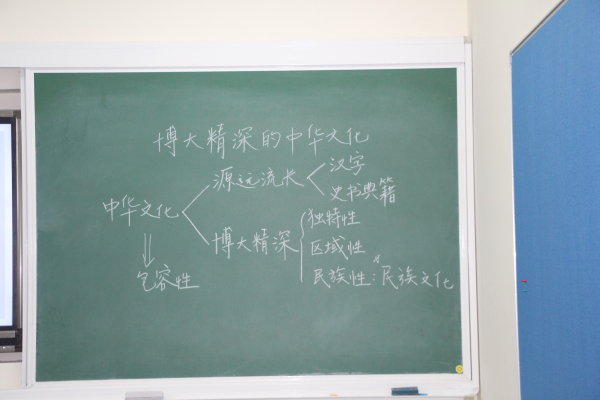 博大精深的中华文化
中华文化
源远流长
汉字
史书典籍
博大精深
独特性
区域性
民族性：民族文化
包容性